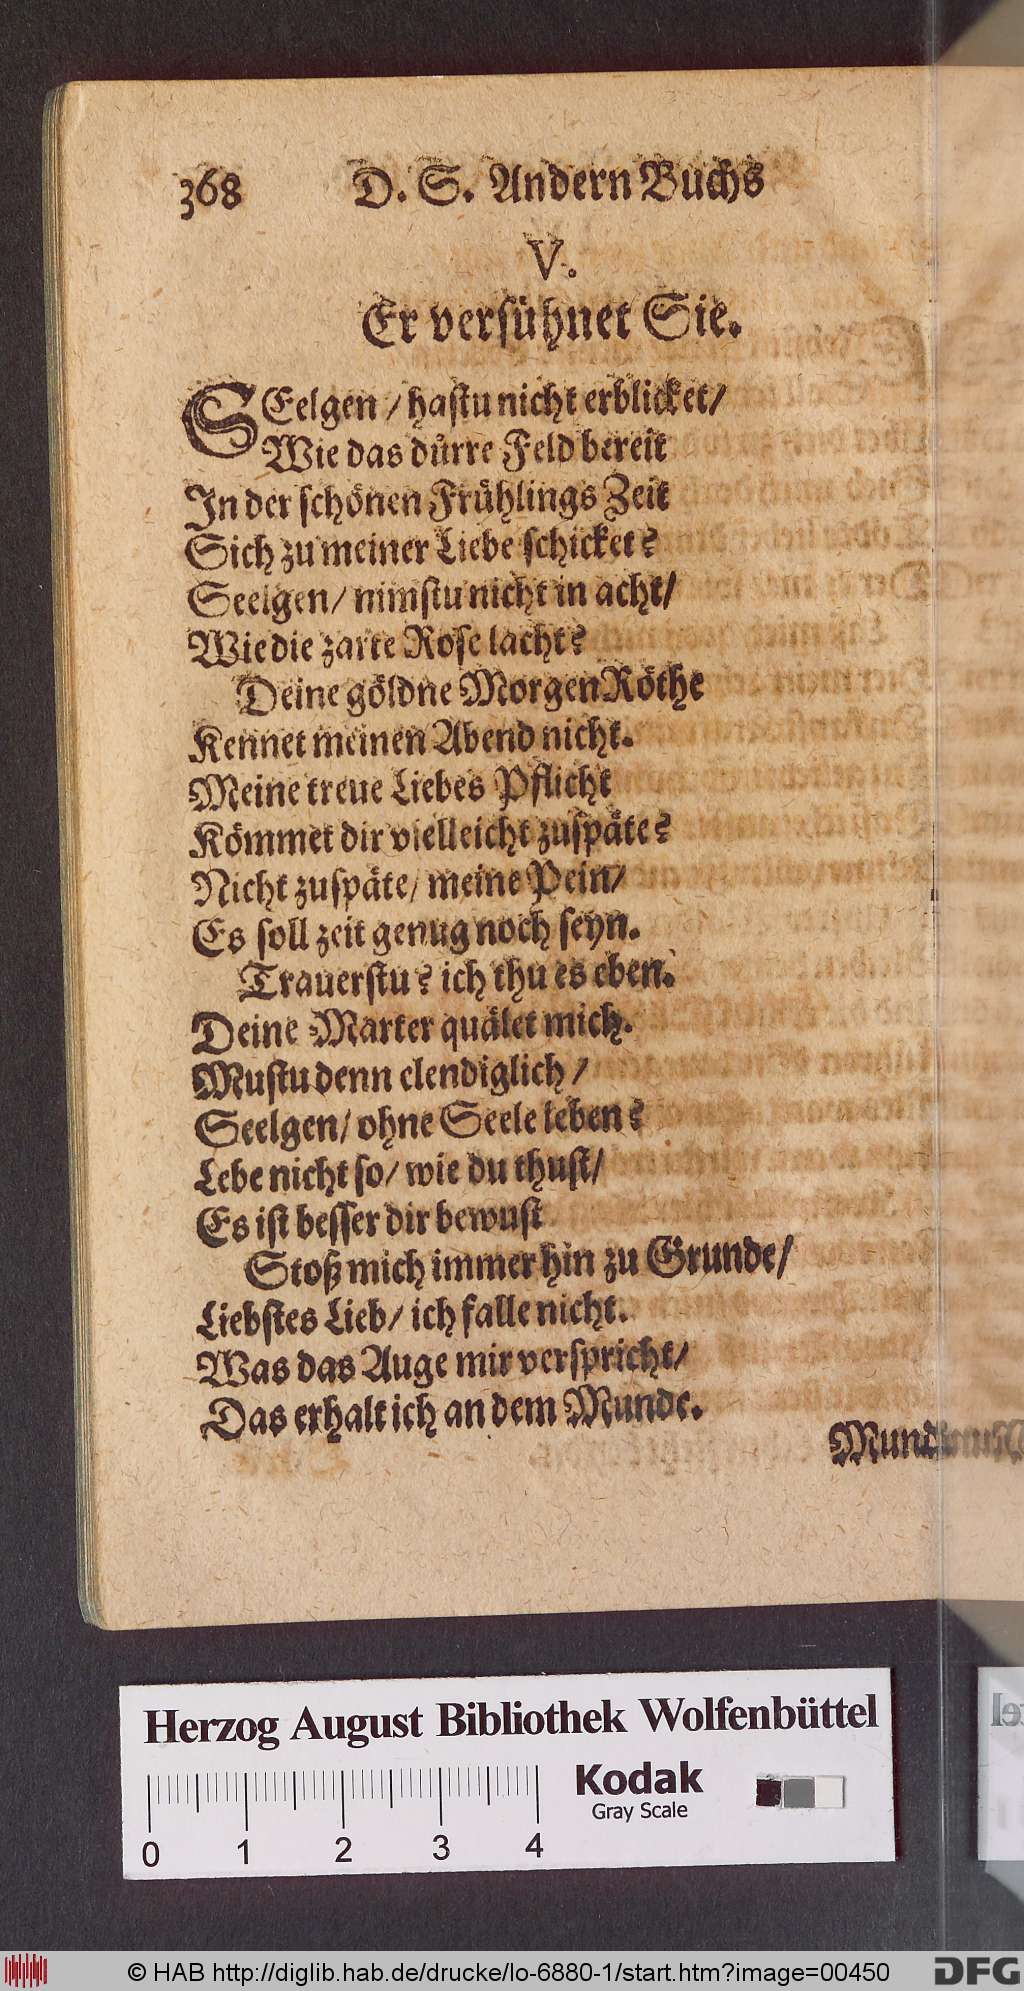 368 D. S. Andern Buchs
V.
Er versühnet Sie.
SEelgen / hastu nicht erblicket/
Wie das dürre Feld bereit
In der schönen Frühlings Zeit
Sich zu meiner Liebe schicket?
Seelgen/ nimstu nicht in acht/
Wie die zarte Rose lacht?
Deine göldne MorgenRöthe
Kennet meinen Abend nicht.
Meine treue Liebes Pflicht
Kömmet dir vielleicht zuspäte?
Nicht zuspäte/ meine Pein/
Es soll zeit genug noch seyn.
Trauerstu? ich thu es eben.
Deine Marter quälet mich.
Mustu denn elendiglich /
Seelgen/ ohne Seele leben?
Lebe nicht so/ wie du thust/
Es ist besser dir bewust
Stoß mich immer hin zu Grunde/
Liebstes Lieb/ ich falle nicht.
Was das Auge mir verspricht/
Das erhalt ich an dem Munde.
Mund
Herzog August Bibliothek Wolfenbüttel
Kodak
Gray Scale
0 1 2 3 4
© HAB http://diglib.hab.de/drucke/lo-6880-1/start.htm?image=00450
DFG